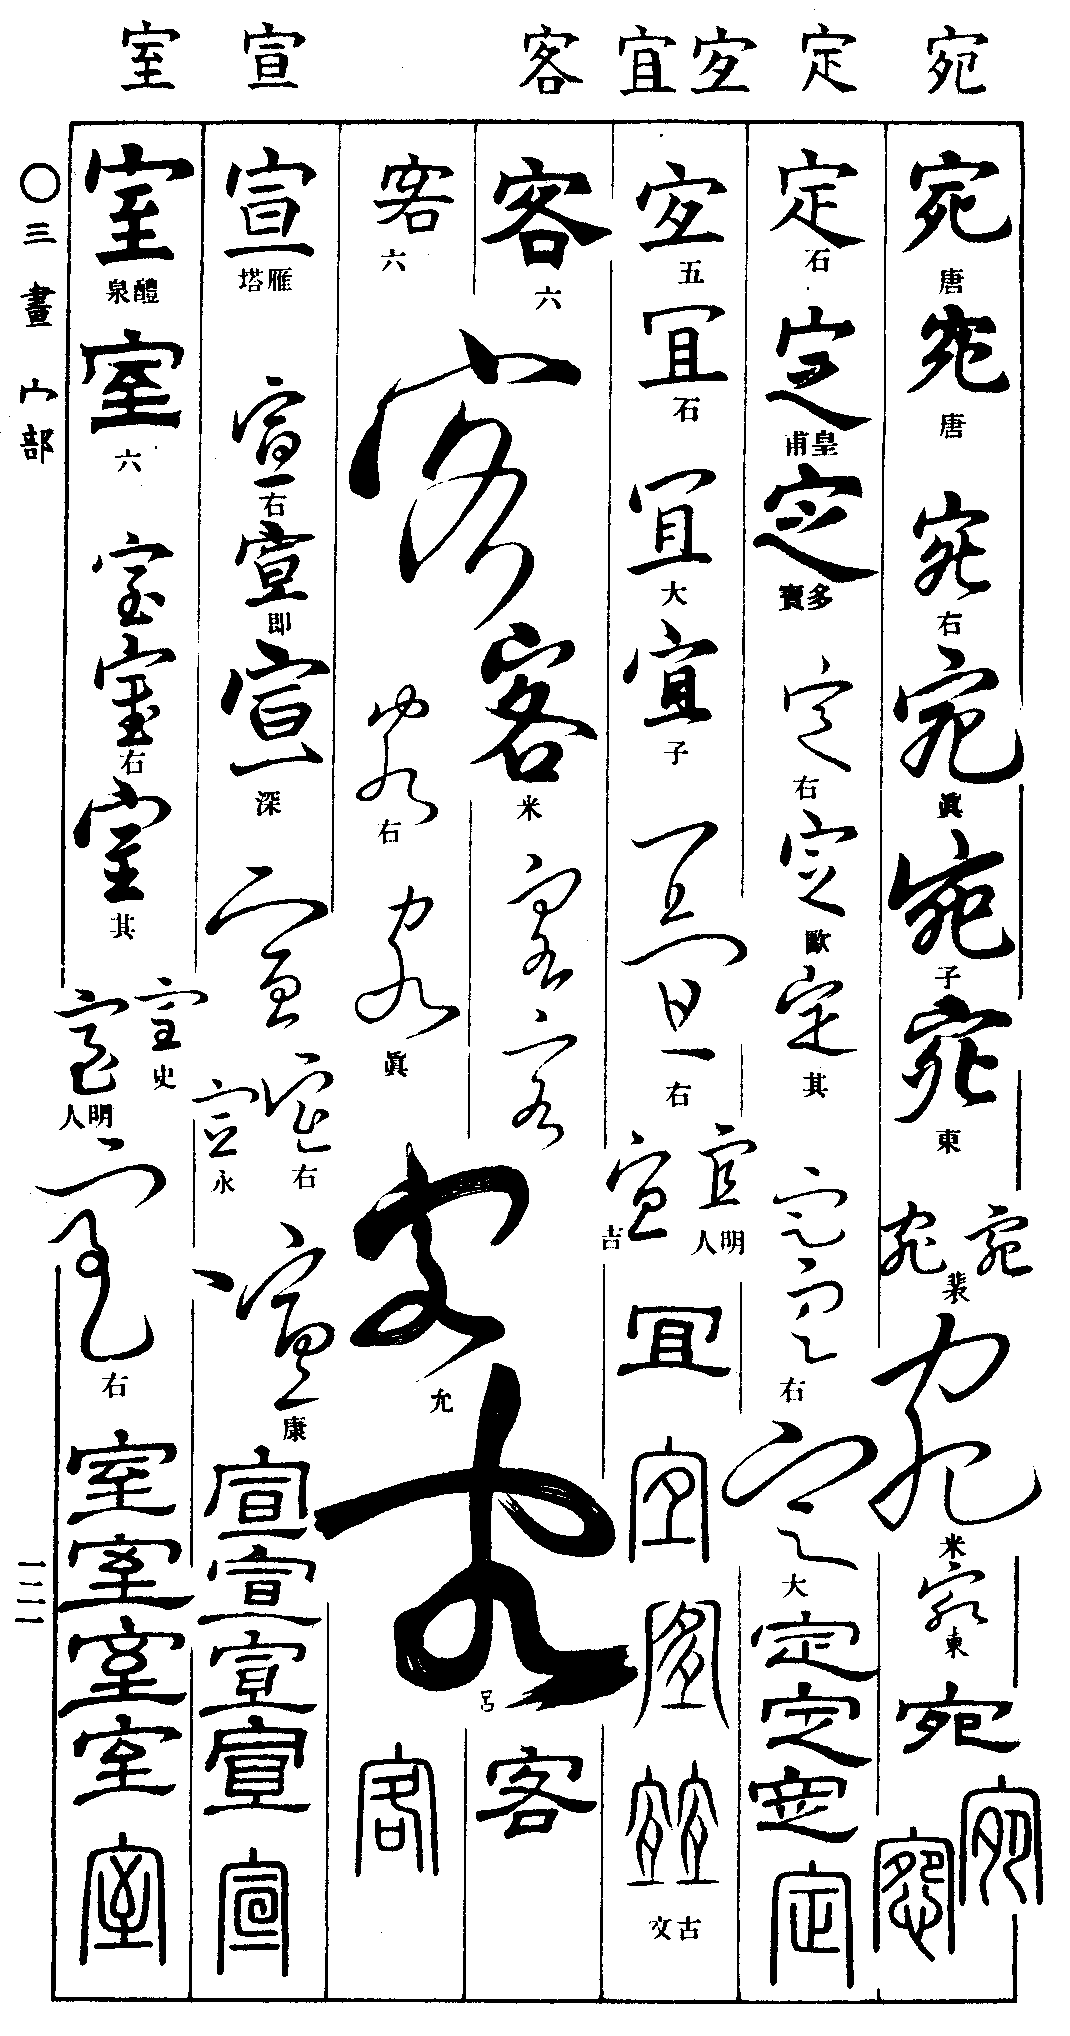 宛 定 宐 宜 客 宣 室
宛 唐
宛 唐
宛 右
宛 眞
宛 子
宛 東
宛 宛 裴
宛 米
宛 東
宛
宛
定 石
定 皇甫
定 多寶
定 右
定 歐
定 其
定
定 右
定 大
定
定
定
定
宐 五
宜 石
宜 大
宜 子
宜
宜 右
宜 明人
宜 吉
宜
宜
宜
宜 宜 古文
客 六
客
客 米
客
客
客 允
客 呂
客
客 六
客 右
客 眞
客
宣 雁塔
宣 右
宣 卽
宣 深
宣
宣 右
宣 永
宣 康
宣
宣
宣
宣
宣
室 醴泉
室 六
室
室 右
室 其
室 史
室 明人
室 右
室
室
室
室
室
〇三畫 宀部
一二一